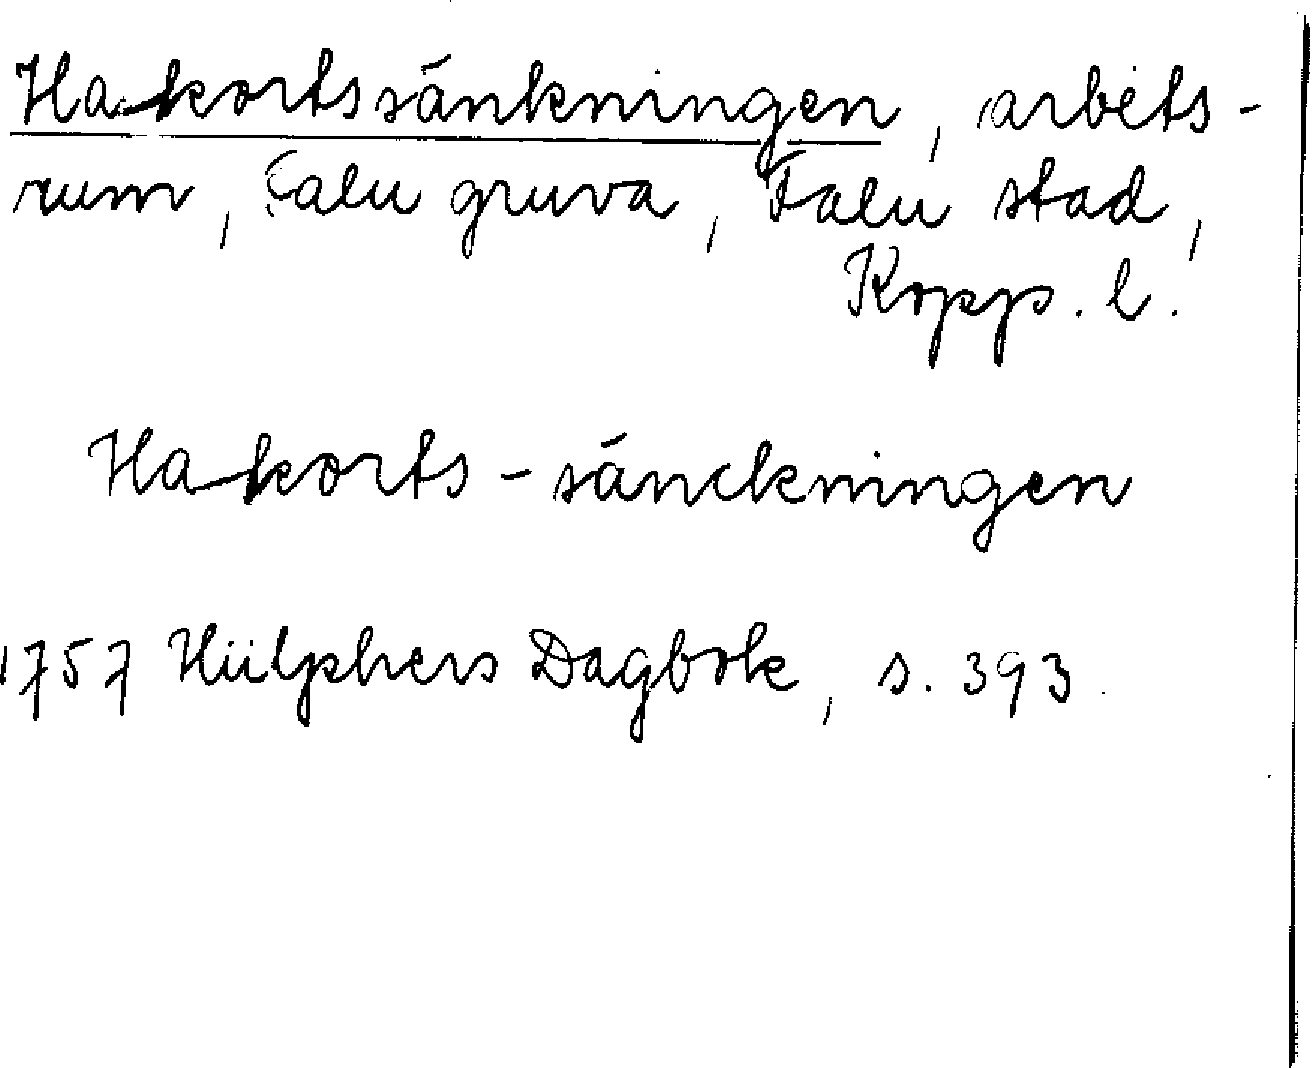 Hakortssänkningen, arbets-
rum, Falu gruva, Falu stad,
Kopp. l.
Hakorts-sänckningen
1757 Hülphers Dagbok, s. 393.